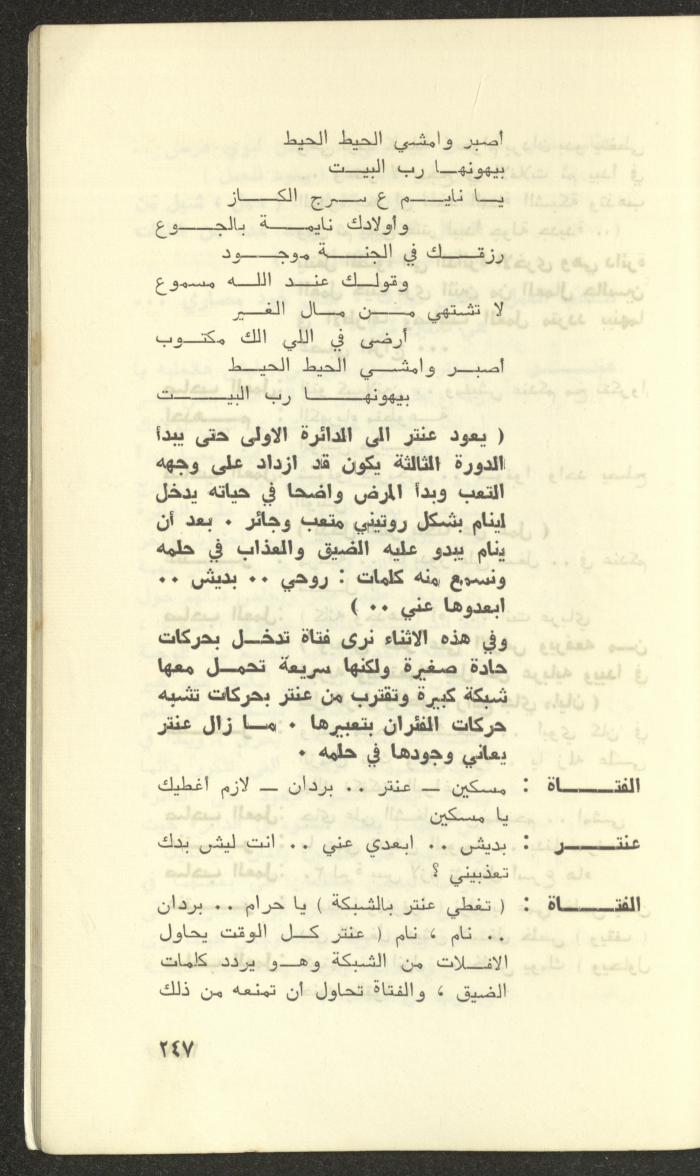 أصبر وامشي الحيط الحيط
بيهونها رب البيت
يا نايم ع سرج الكاز
وأولادك نايمة بالجوع
رزقك في الجنة موجود
وقولك عند الله مسموع
لا تشتهي من مال الغير
أرضى في اللي الك مكتوب
أصبر وامشي الحيط الحيط
بيهونها رب البيت
( يعود عنتر الى الدائرة الاولى حتى يبدأ
الدورة الثالثة يكون قد ازداد على وجهه
التعب وبدأ المرض واضحا في حياته يدخل
لينام بشكل روتيني متعب وجائر . بعد أن
ينام يبدو عليه الضيق والعذاب في حلمه
ونسمع منه كلمات : روحي .. بديش ..
ابعدوها عني .. )
وفي هذه الاثناء نرى فتاة تدخل بحركات
حادة صغيرة ولكنها سريعة تحمل معها
شبكة كبيرة وتقترب من عنتر بحركات تشبه
حركات الفئران بتعبيرها . ما زال عنتر
يعاني وجودها في حلمه .
الفتاة : مسكين ــ عنتر .. بردان ــ لازم اغطيك
يا مسكين
عنتر : بديش .. ابعدي عني .. انت ليش بدك
تعذبيني ؟
الفتاة : ( تغطي عنتر بالشبكة ) يا حرام .. بردان
.. نام ، نام ( عنتر كل الوقت يحاول
الافلات من الشبكة وهو يردد كلمات
الضيق ، والفتاة تحاول ان تمنعه من ذلك
٢٤٧